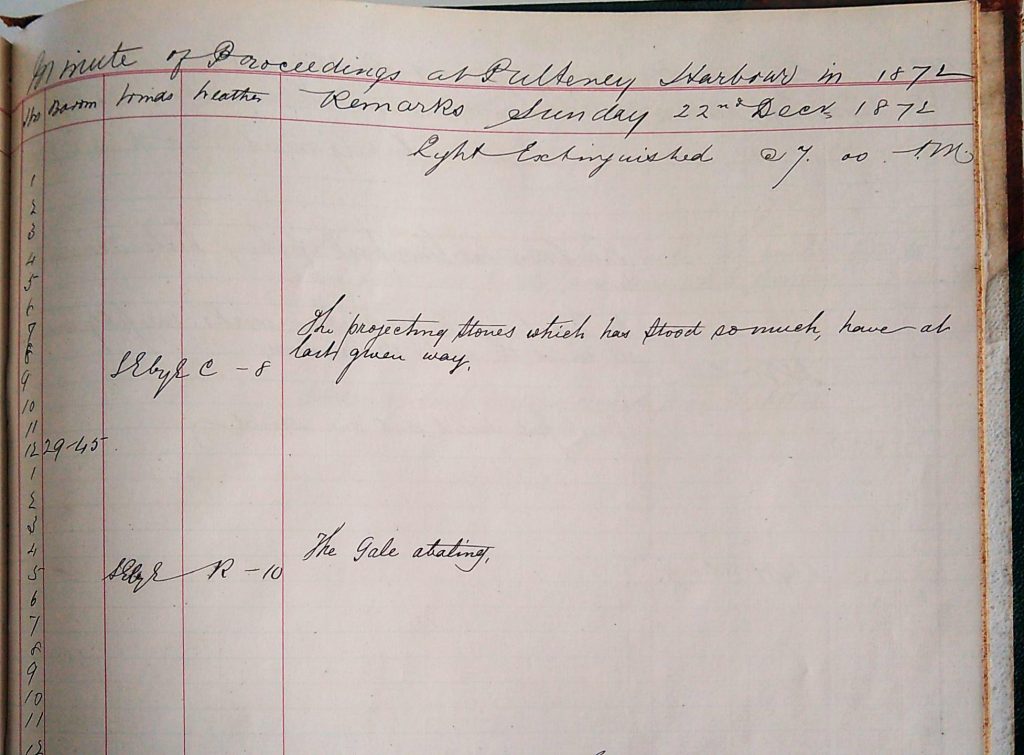 Minute of Proceedings at Pulteney Harbour in 1872
Hrs Barom Winds Weather Remarks Sunday 22nd Decr 1872
Light Extinguished @ 7. 00. A.M.
1
2
3
4
5
6
The projecting stones which has stood so much, have at
7
last given way.
8
SEbyE C - 8
9
10
11
12 29-45
1
2
3
4 The Gale abating,
5 SEbyE R - 10
6
7
8
9
10
11
12